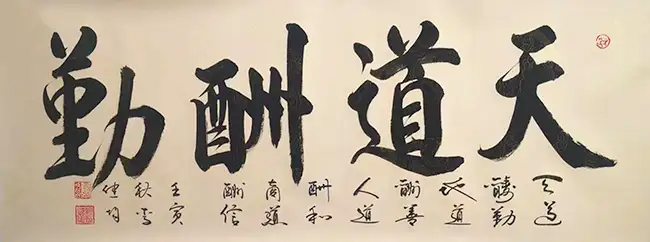 天道酬勤
天道
酬勤
地道
酬善
人道
酬和
商道
酬信
壬寅
秋月